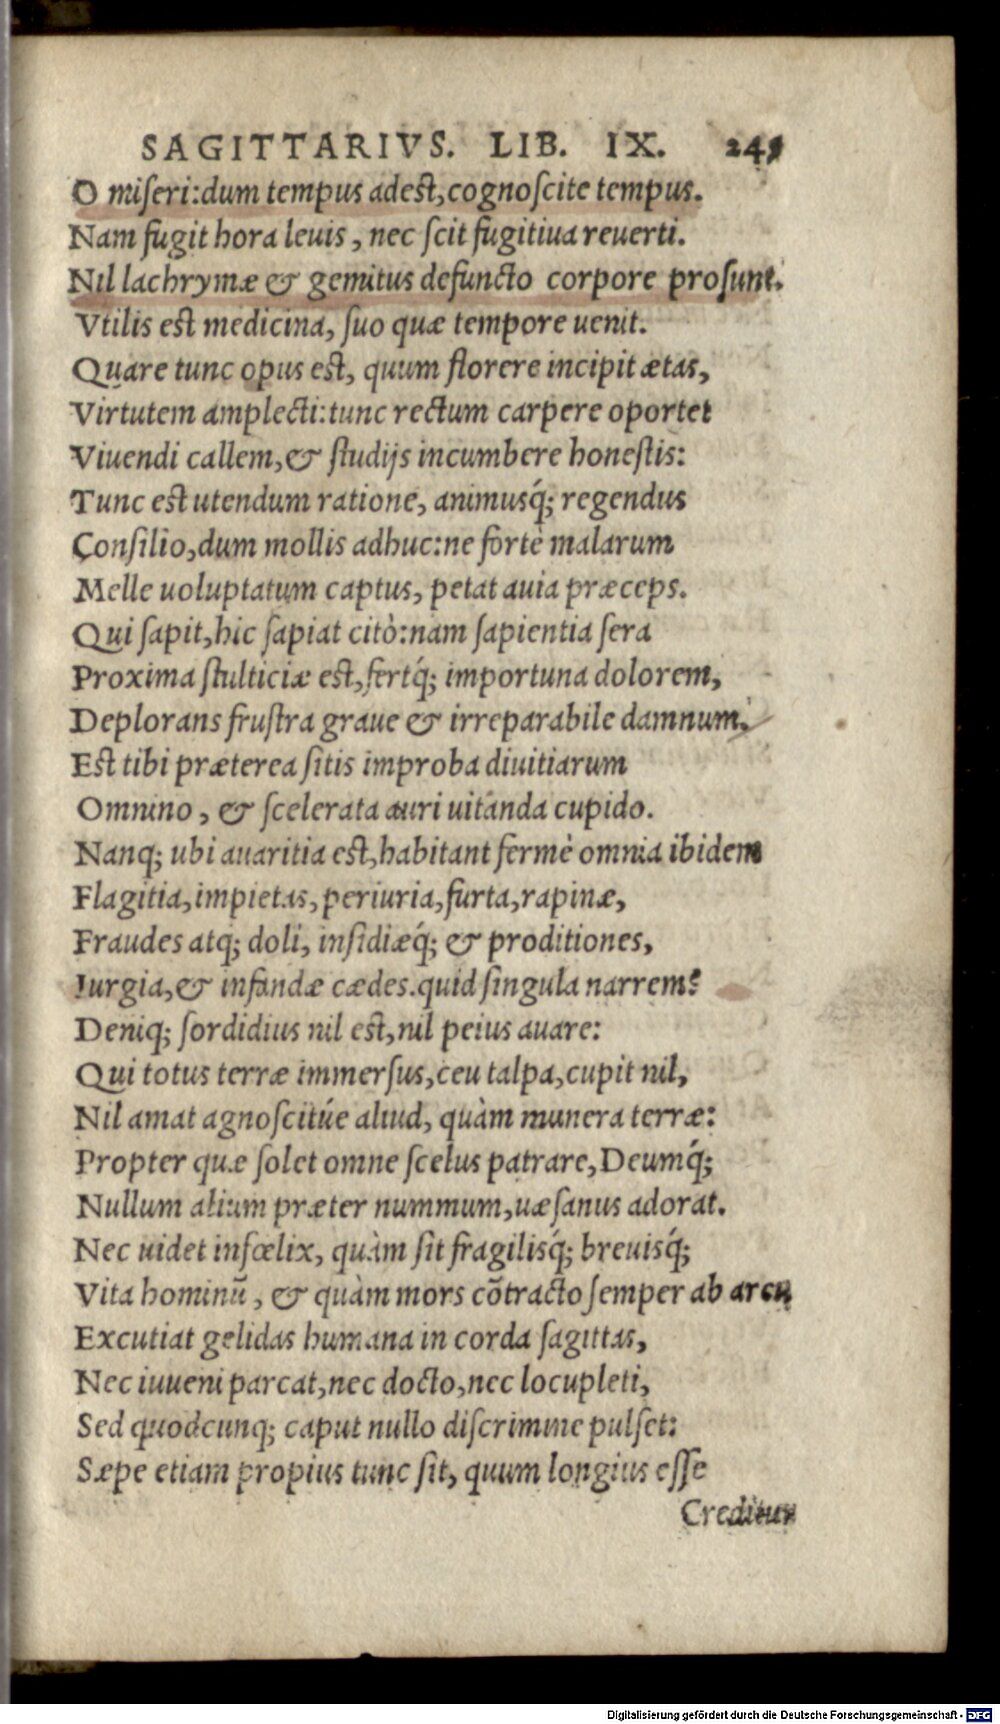 SAGITTARIVS. LIB. IX.
O miſeri:dum tempus adest,cognoſcite tempus.
Nam fugit hora leuis, nec ſcit fugitiua reuerti.
Nil lachrymæ & gemitus defuncto corpore proſunt.
Vtilis est medicina, ſuo quæ tempore uenit.
Quare tunc opus est, quum florere incipit ætas,
Virtutem amplecti:tunc rectum carpere oportet
Viuendi callem,& ſtudijs incumbere honeſtis:
Tunc est utendum ratione, animusq́; regendus
Conſilio,dum mollis adhuc:ne fortè malarum
Melle uoluptatum captus, petat auia præceps.
Qui ſapit,hic ſapiat citò:nam ſapientia ſera
Proxima ſtulticiæ est,fertq́; importuna dolorem,
Deplorans fruſtra graue & irreparabile damnum.
Est tibi præterea ſitis improba diuitiarum
Omnino, & ſcelerata auri uitanda cupido.
Nanq; ubi auaritia est,habitant fermè omnia ibidem
Flagitia,impietas,periuria,furta,rapinæ,
Fraudes atq; doli, inſidiæq́; & proditiones,
Iurgia,& infandæ cædes.quid ſingula narrem?
Deniq; ſordidius nil est,nil peius auare:
Qui totus terræ immerſus,ceu talpa,cupit nil,
Nil amat agnoſcitúe aliud, quàm munera terræ:
Propter quæ ſolet omne ſcelus patrare,Deumq́;
Nullum alium præter nummum,uæſanus adorat.
Nec uidet infœlix, quàm ſit fragilisq́; breuisq́;
Vita hominũ, & quàm mors cõtracto ſemper ab arcu
Excutiat gelidas humana in corda ſagittas,
Nec iuueni parcat,nec docto,nec locupleti,
Sed quodcunq; caput nullo diſcrimine pulſet:
Sæpe etiam propius tunc ſit, quum longius eſſe
Creditur
Digitalisierung gefördert durch die Deutsche Forschungsgemeinschaft - DFG